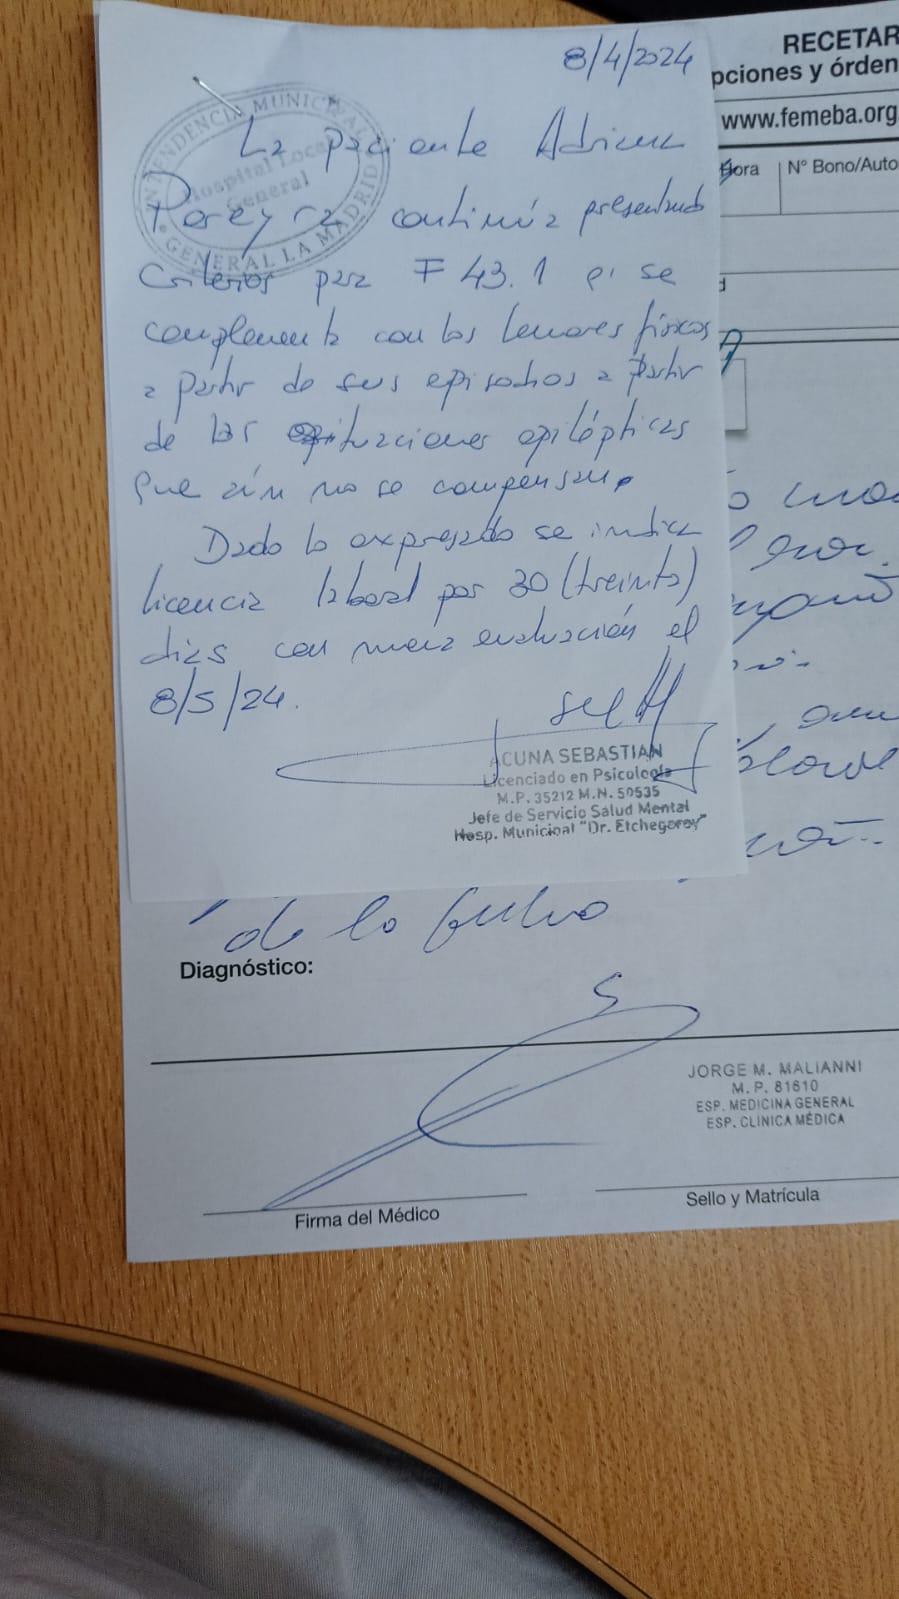 8/4/2024
INTENDENCIA MUNICIPAL
Hospital Local
General
GENERAL LA MADRID
La paciente Adriana
Pereyra continúa presentando
Criterios para F 43.1 se
complementa con los temores físicos
a partir de sus episodios a partir
de las situaciones epilépticas
que aún no se compensan.
Dado lo expresado se indica
licencia laboral por 30 (treinta)
días con nueva evaluación el
8/5/24.
ACUNA SEBASTIAN
Licenciado en Psicología
M.P. 35212 M.N. 50535
Jefe de Servicio Salud Mental
Hosp. Municipal "Dr. Etchegorey"
RECETAR
pciones y órden
www.femeba.org
Hora
N° Bono/Auto
de lo
Diagnóstico:
JORGE M. MALIANNI
M. P. 81610
ESP. MEDICINA GENERAL
ESP. CLINICA MÉDICA
Firma del Médico
Sello y Matrícula